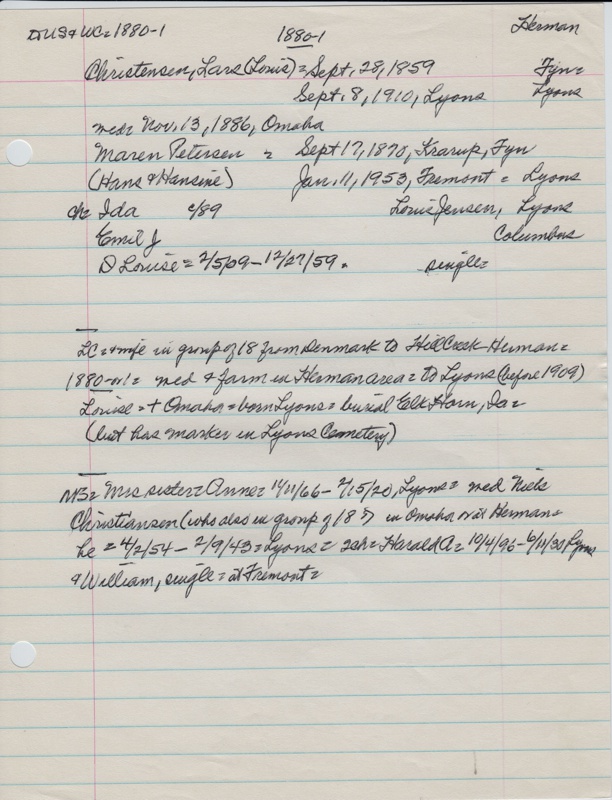 DUS & WC = 1880-1 1880-1 Herman
Christensen, Lars (Louis) = Sept. 28, 1859 Fyn =
Sept. 8, 1910, Lyons Lyons
med = Nov. 13, 1886, Omaha
Maren Petersen = Sept 17, 1870, Krarup, Fyn
(Hans & Hansine) Jan. 11, 1953, Fremont = Lyons
ch = Ida c/89 Louis Jensen, Lyons
Emil J Columbus
D Louise = 2/5/09 - 12/27/59. single =
LC = & wife in group of 18 from Denmark to Hill Creek - Herman =
1880-or1 = med & farm in Herman area = to Lyons (before 1909)
Louise = + Omaha = born Lyons = burial Elk Horn, Ia =
(but has marker in Lyons Cemetery)
NB = Mrs sister = Anne = 11/11/66 - 2/15/20, Lyons = med Niels
Christiansen (who also in group of 18?) in Omaha or at Herman =
he = 4/2/54 - 2/9/43 = Lyons = 2ch = Harald A = 10/4/96 - 6/11/30 Lyons
& William, single = at Fremont =